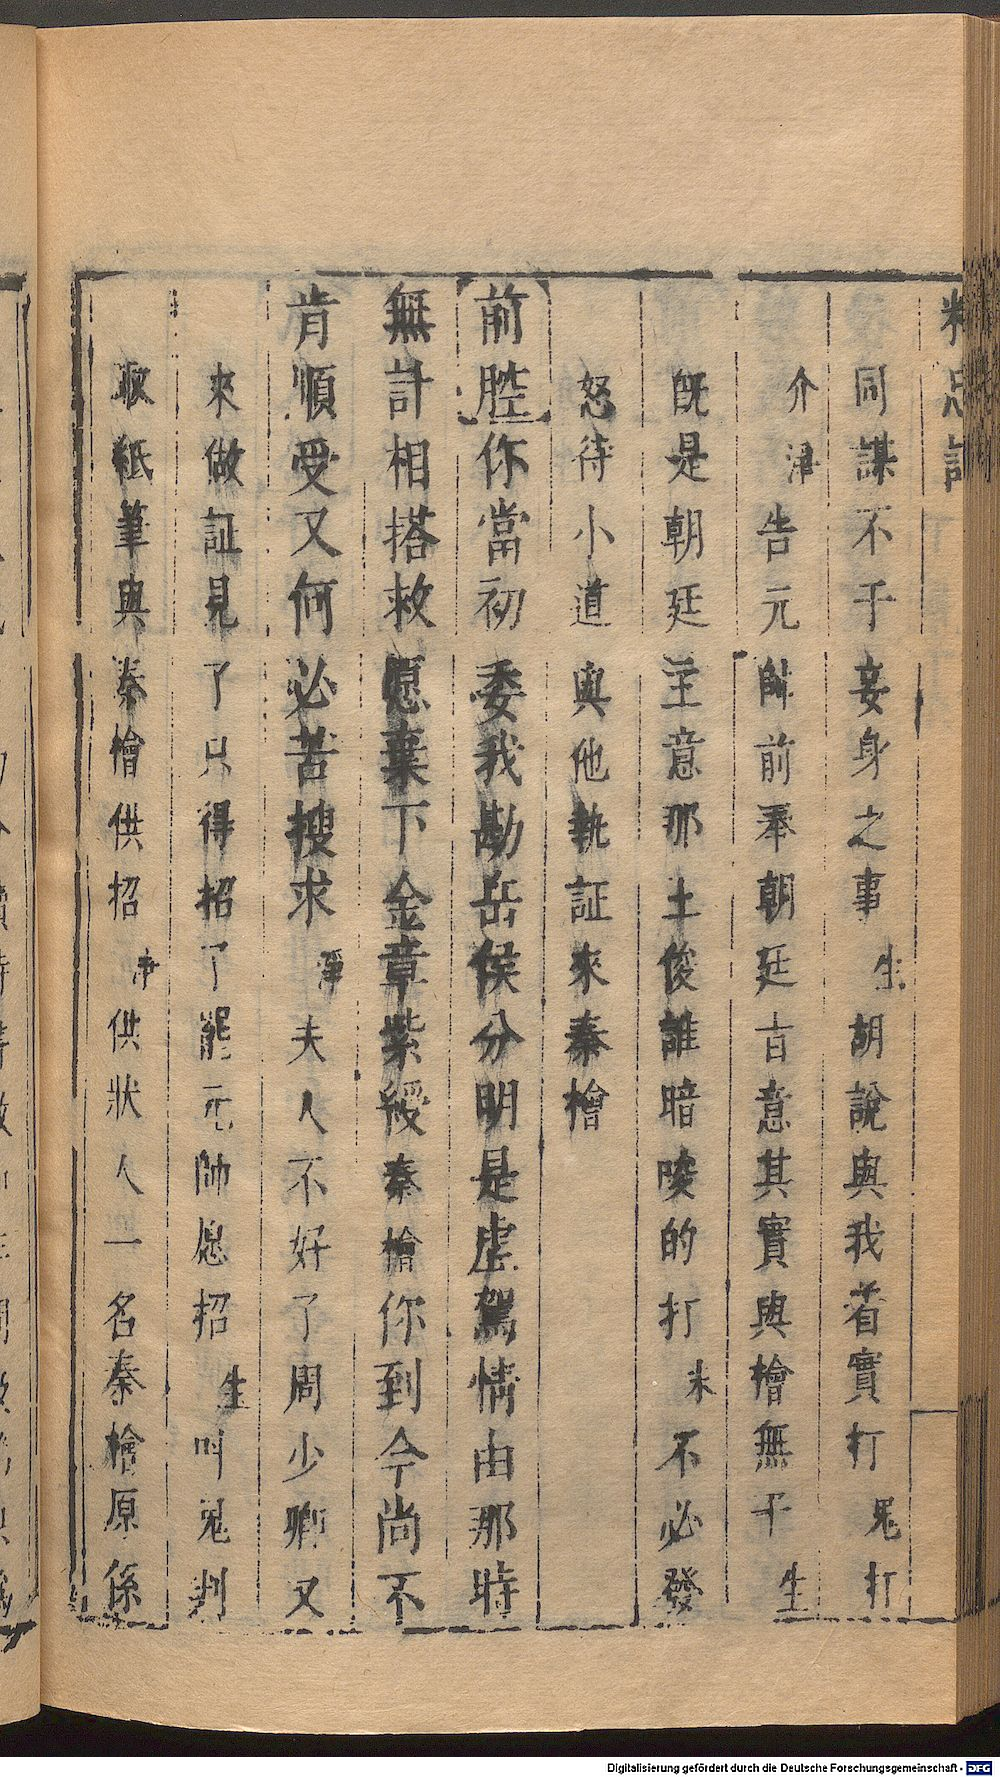 精忠記
同謀不干妾身之事生胡說與我着實打鬼打
介淨告元帥前奉朝廷旨意其實與檜無干生
旣是朝廷主意那土俊誰暗陵的打末不必發
怒待小道與他執証來秦檜
前腔你當初委我勘岳侯分明是虛駕情由那時
無計相搭救愿棄下金章紫綬秦檜你到今尚不
肯順受又何必苦搜求淨夫人不好了周少卿又
來做証見了只得招了罷元帥愿招生叫鬼判
取紙筆與秦檜供招净供狀人一名秦檜原係
Digitalisierung gefördert durch die Deutsche Forschungsgemeinschaft - DFG